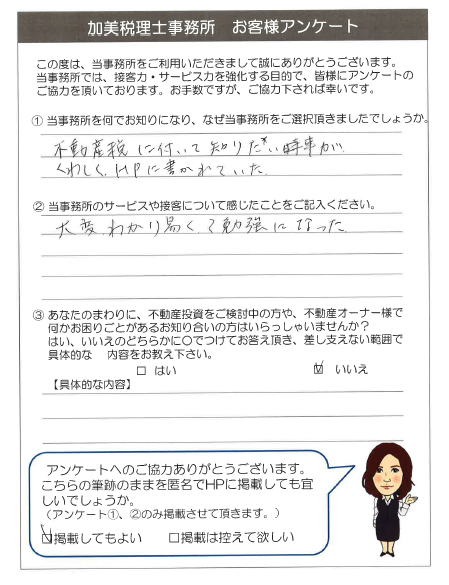 加美税理士事務所 お客様アンケート
この度は、当事務所をご利用いただきまして誠にありがとうございます。
当事務所では、接客力・サービス力を強化する目的で、皆様にアンケートの
ご協力を頂いております。お手数ですが、ご協力下されば幸いです。
① 当事務所を何でお知りになり、なぜ当事務所をご選択頂きましたでしょうか。
不動産税に付いて知りたい時事が
くわしくHPに書かれていた
② 当事務所のサービスや接客について感じたことをご記入ください。
大変わかり易くて勉強になった
③ あなたのまわりに、不動産投資をご検討中の方や、不動産オーナー様で
何かお困りごとがあるお知り合いの方はいらっしゃいませんか?
はい、いいえのどちらかに〇でつけてお答え頂き、差し支えない範囲で
具体的な 内容をお教え下さい。
□ はい ☑ いいえ
【具体的な内容】
アンケートへのご協力ありがとうございます。
こちらの筆跡のままを匿名でHPに掲載しても宜
しいでしょうか。
(アンケート①、②のみ掲載させて頂きます。)
☑掲載してもよい □掲載は控えて欲しい